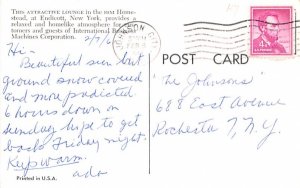 THIS ATTRACTIVE LOUNGE in the IBM Home-
stead, at Endicott, New York, provides a
relaxed and homelike atmosphere for cus-
tomers and guests of International Business
Machines Corporation.
2/7/6
Hi-
Beautiful sun but
ground snow covered
and more predicted
6 hours down on
Sunday hope to get
back Friday night.
Keep warm.
Ada
Printed in U.S.A.
JOHNSON CITY
FEB 8
4¢
POST CARD
The Johnsons
688 East Avenue
Rochester 7, N.Y.